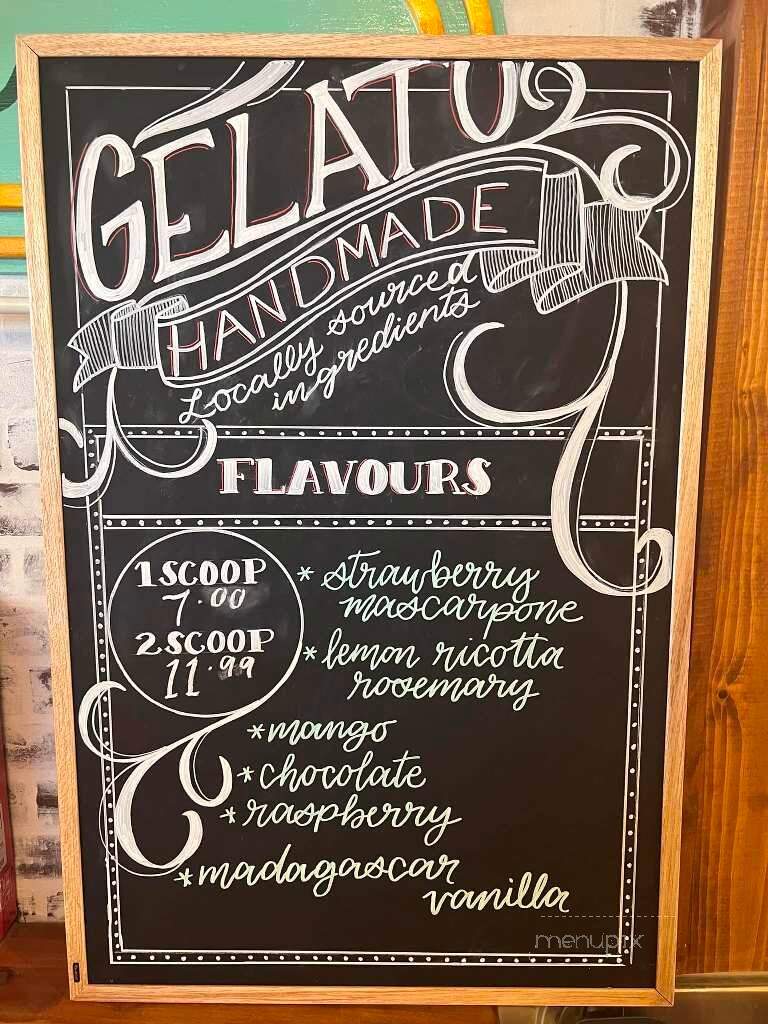 GELATO
HANDMADE
Locally sourced
ingredients
FLAVOURS
1 SCOOP
7.00
2 SCOOP
11.99
* strawberry
mascarpone
* lemon ricotta
rosemary
* mango
* chocolate
* raspberry
* madagascar
vanilla
menupix